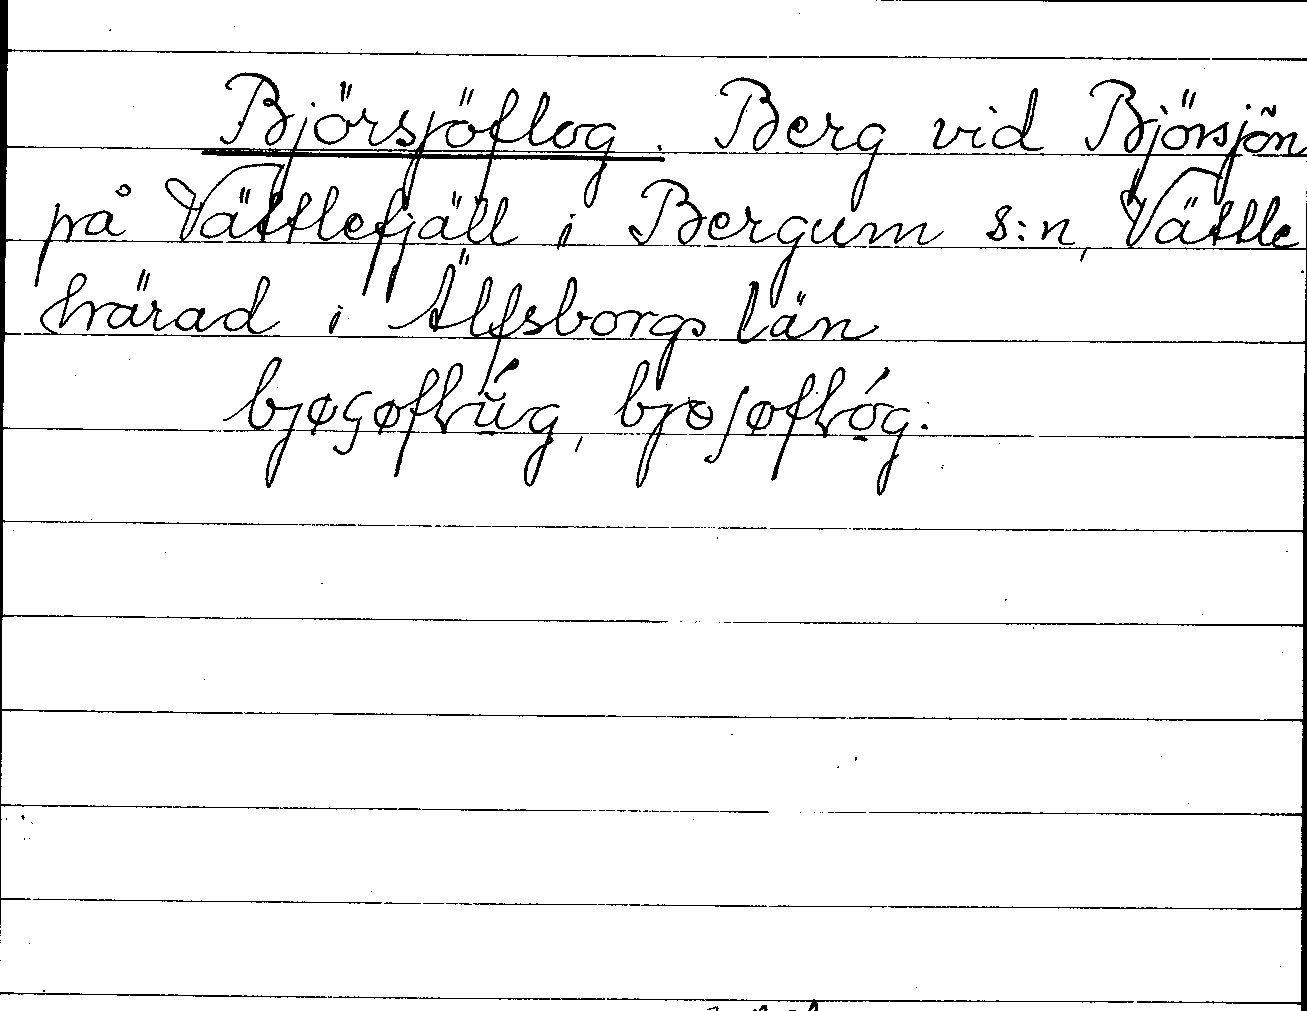 Björsjöflog. Berg vid Björsjön
på Vättlefjäll i Bergum s:n, Vättle
härad i Älfsborgs län
bjøꞔøflu̇́g, bjøʃøflóg.